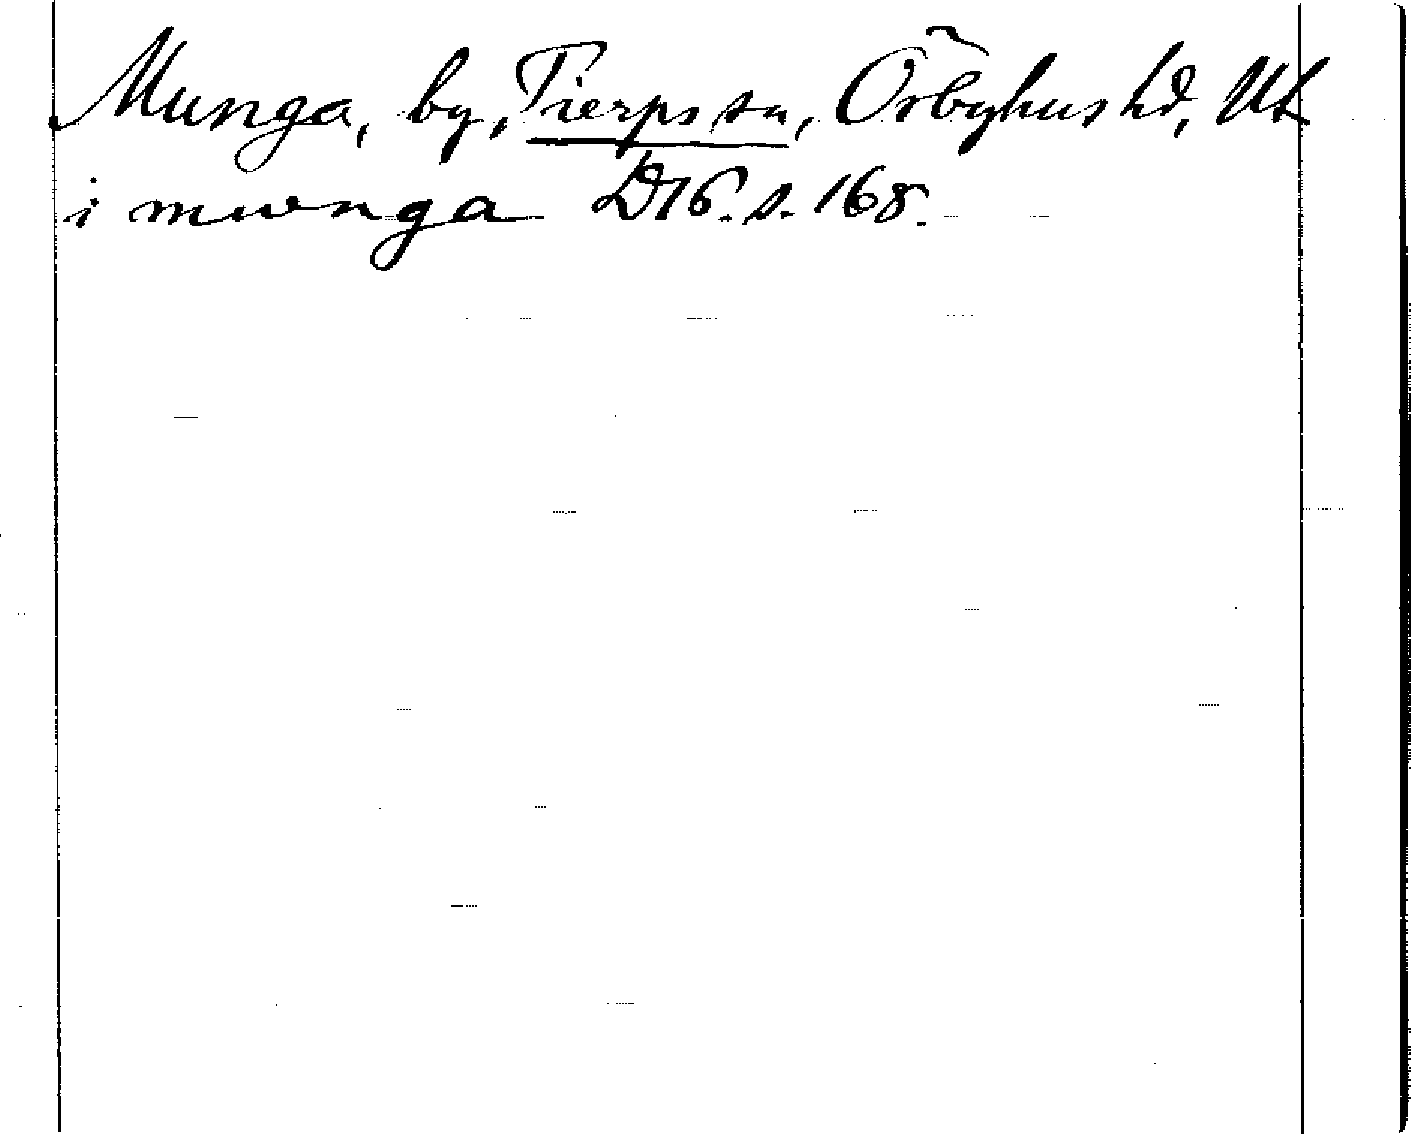 Munga, by, Tierps sn, Örbyhus hd, Upl
i mwnga D16. s. 168.